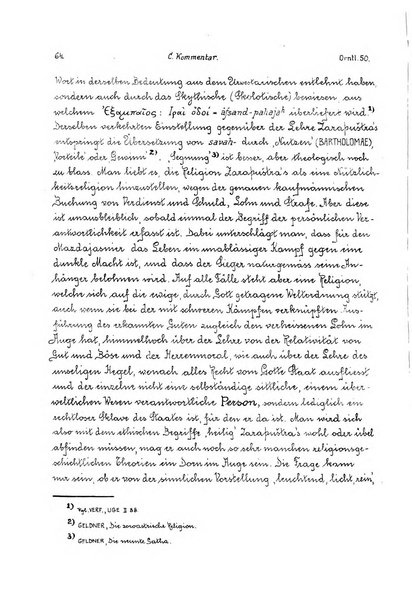 64. C. Kommentar. Orntl. 50.
Wort in derselben Bedeutung aus dem Awestarischen entlehnt haben,
sondern auch durch das Skythische (Skolotische) bewiesen, aus
welchem Ἐξαμπαῖος: Ἱραὶ ὁδοί = überliefert wird. 1)
Derselben verkehrten Einstellung gegenüber der Lehre Zaraϑuštra's
entspringt die Übersetzung von savah- durch 'Nutzen' (BARTHOLOMAE),
Vorteile' oder Gewinn' 2). 'Segnung' 3) ist besser, aber theologisch noch
zu blass. Man liebt es, die Religion Zaraϑuštra's als eine Nützlich-
keitsreligion hinzustellen, wegen der genauen kaufmännischen
Buchung von Verdienst und Schuld, Lohn und Strafe. Aber diese
ist unausbleiblich, sobald einmal der Begriff der persönlichen Ver-
antwortlichkeit erfasst ist. Dabei unterschlägt man, dass für den
Mazdajasnier das Leben ein unablässiger Kampf gegen eine
dunkle Macht ist, und dass der Sieger naturgemäss seine An-
hänger belohnen wird. Auf alle Fälle steht aber eine Religion,
welche sich auf die ewige, durch Gott getragene Weltordnung stützt,
auch wenn sie bei der mit schweren Kämpfen verknüpften Aus-
führung des erkannten Guten zugleich den verheissenen Lohn im
Auge hat, himmelhoch über der Lehre von der Relativität von
Gut und Böse und der Herrenmoral, wie auch über der Lehre des
unseligen Hegel, wonach alles Recht vom Gotte Staat ausfliesst
und der einzelne nicht eine selbständige sittliche, einem über-
weltlichen Wesen verantwortliche Person, sondern lediglich ein
rechtloser Sklave des Staates ist, für den er da ist. Man wird sich
also mit dem ethischen Begriffe 'heilig' Zaraϑuštra's wohl oder übel
abfinden müssen, mag er auch noch so sehr manchen religionsge-
schichtlichen Theorien ein Dorn im Auge sein. Die Frage kann
nur sein, ob er von der sinnlichen Vorstellung 'leuchtend, licht, rein',
1) Vgl. VERF., UGE II 88.
2) GELDNER, Die zoroastrische Religion.
3) GELDNER, Die neunte Gatha.